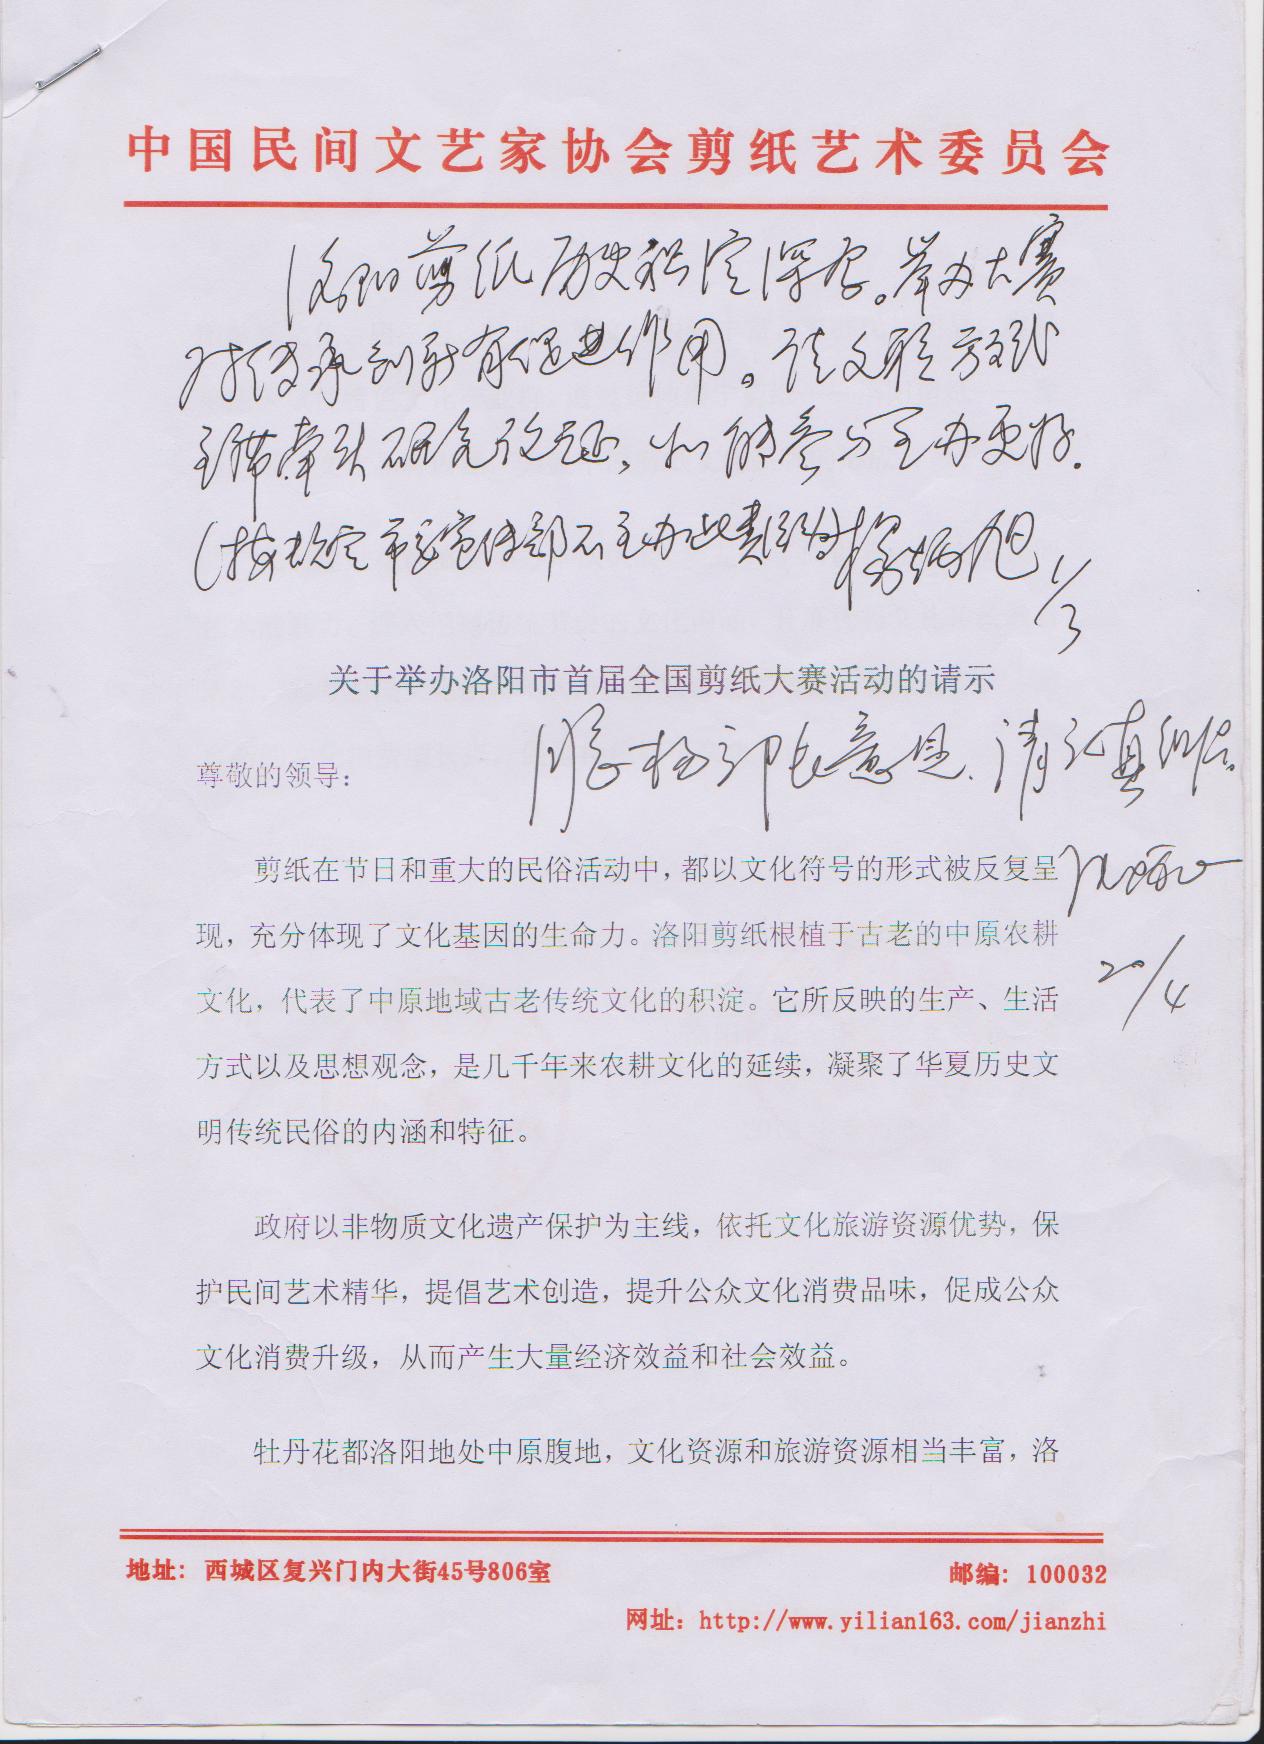 中国民间文艺家协会剪纸艺术委员会
洛阳剪纸历史积淀深厚。举办大赛
对传承创新有促进作用。请文联
主席牵头研究论证,如能参与主办更好。
(按规定市委宣传部不主办此类活动)杨炳旭
1/3
关于举办洛阳市首届全国剪纸大赛活动的请示
尊敬的领导:
杨部长意见,请
20/4
剪纸在节日和重大的民俗活动中,都以文化符号的形式被反复呈
现,充分体现了文化基因的生命力。洛阳剪纸根植于古老的中原农耕
文化,代表了中原地域古老传统文化的积淀。它所反映的生产、生活
方式以及思想观念,是几千年来农耕文化的延续,凝聚了华夏历史文
明传统民俗的内涵和特征。
政府以非物质文化遗产保护为主线,依托文化旅游资源优势,保
护民间艺术精华,提倡艺术创造,提升公众文化消费品味,促成公众
文化消费升级,从而产生大量经济效益和社会效益。
牡丹花都洛阳地处中原腹地,文化资源和旅游资源相当丰富,洛
地址: 西城区复兴门内大街45号806室
邮编: 100032
网址: http://www.yilian163.com/jianzhi